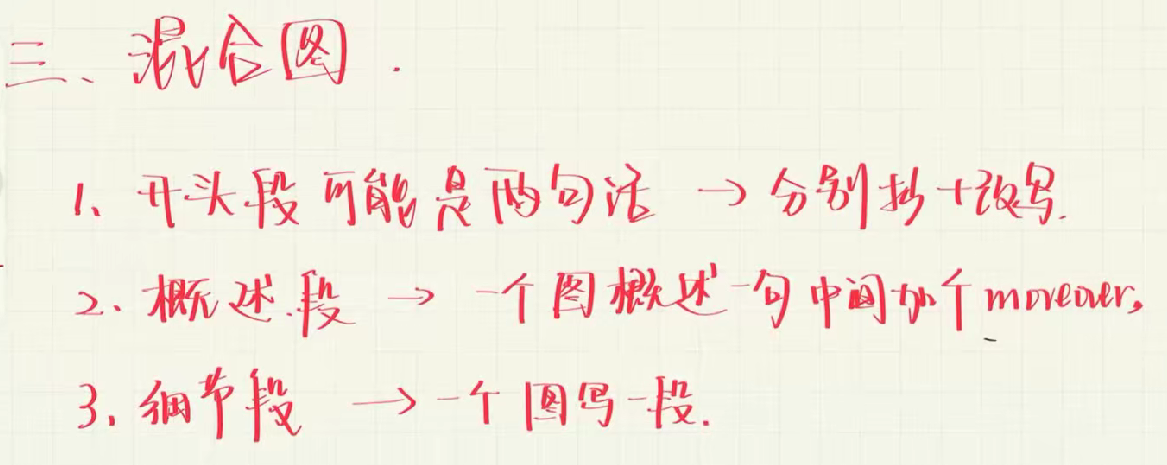 三、混合图.
1、开头段可能是两句话 → 分别抄+改写.
2、概述段 → 一个图概述一句中间加个 moreover,
3、细节段 → 一个图写一段.